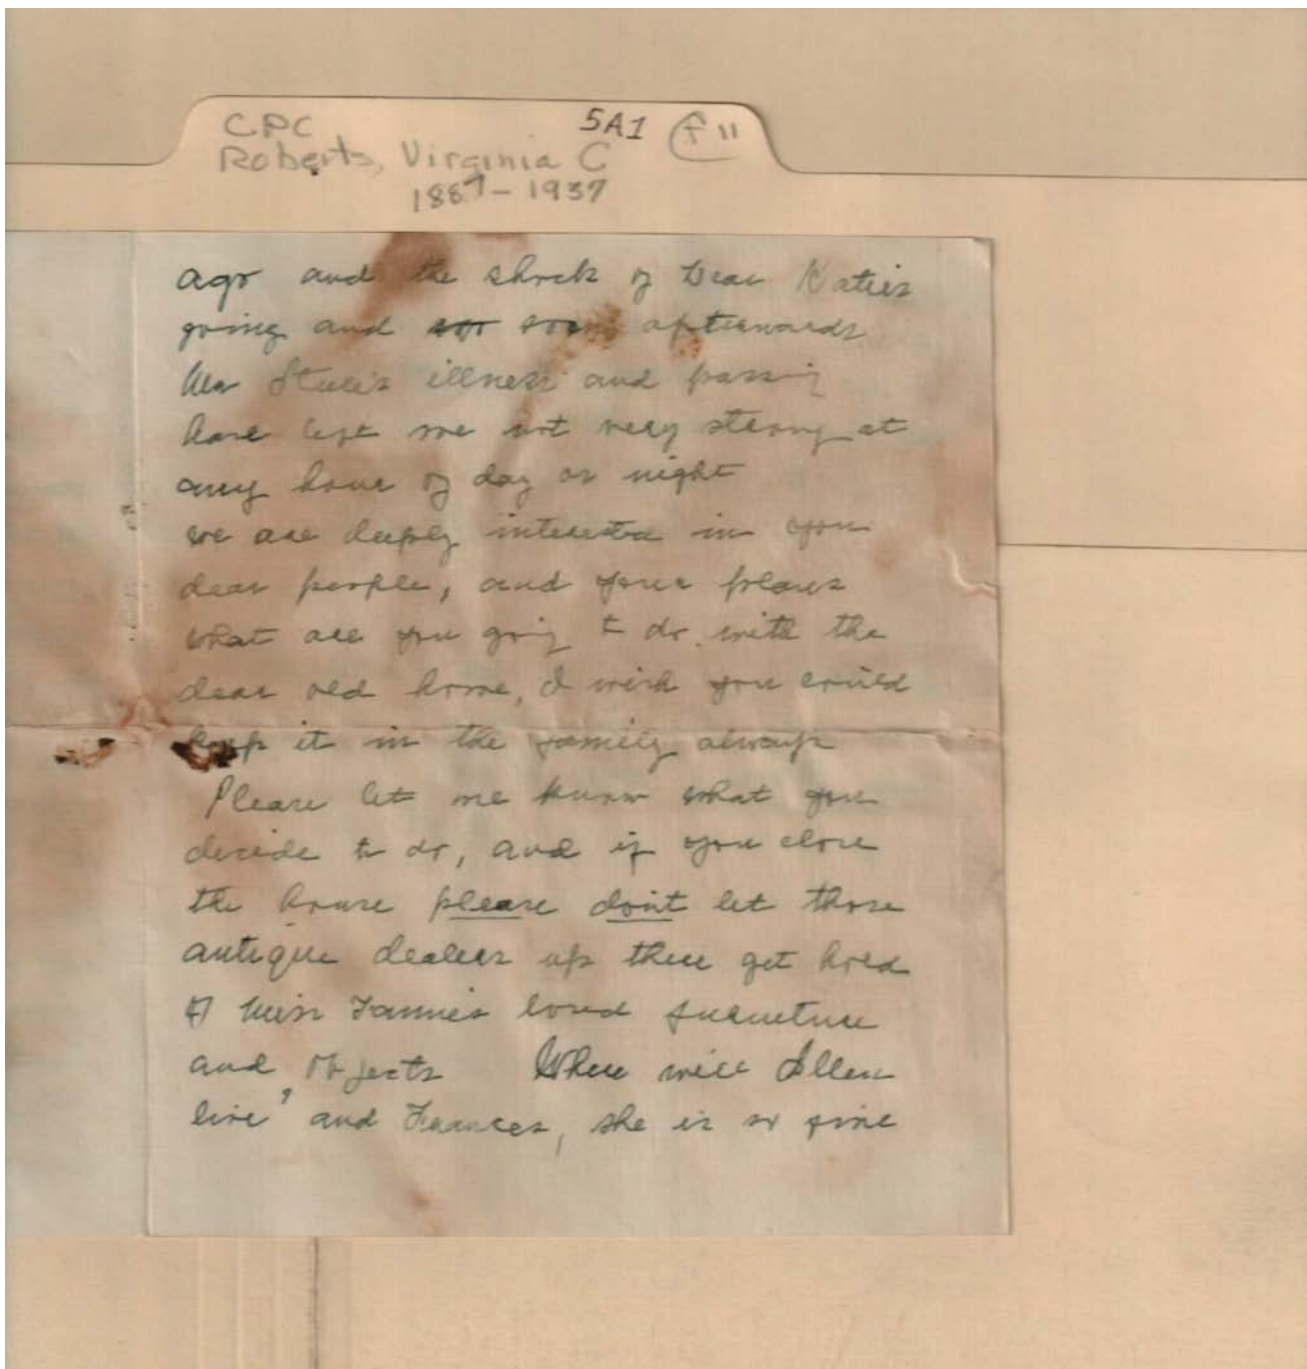 CPC 5A1 f11
Roberts, Virginia C
1887-1937
ago and the shock of Dear Katies
going and so soon afterwards
illness and passing
have left me not very strong at
any hour of day or night
we are deeply interested in you
dear people, and your plans
what are you going to do with the
dear old home, I wish you could
keep it in the family always
Please let me know what you
decide to do, and if you close
the house please dont let those
antique dealers up there get hold
of Miss Fannies loved furniture
and objects Where will Ellen
live, and Frances, she is so fine